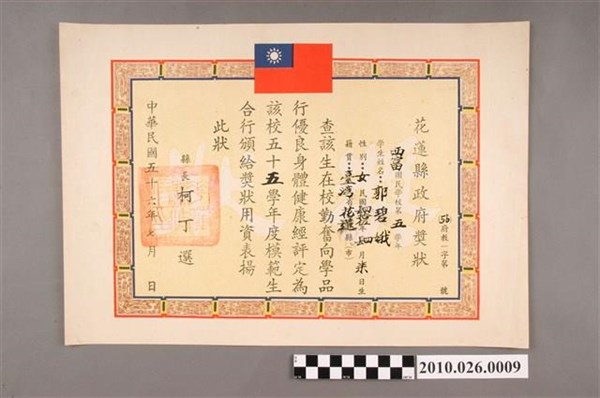 花蓮縣政府獎狀
56府教一字第 號
西富國民學校第五學年
學生姓名：郭碧娥
性別：女 民國 年 月柒日生
籍貫：臺灣省花蓮縣(市)
查該生在校勤奮向學品
行優良身體健康經評定為
該校五十五學年度模範生
合行頒給獎狀用資表揚
此狀
縣長 柯丁選
中華民國五十六年 月 日
2010.026.0009